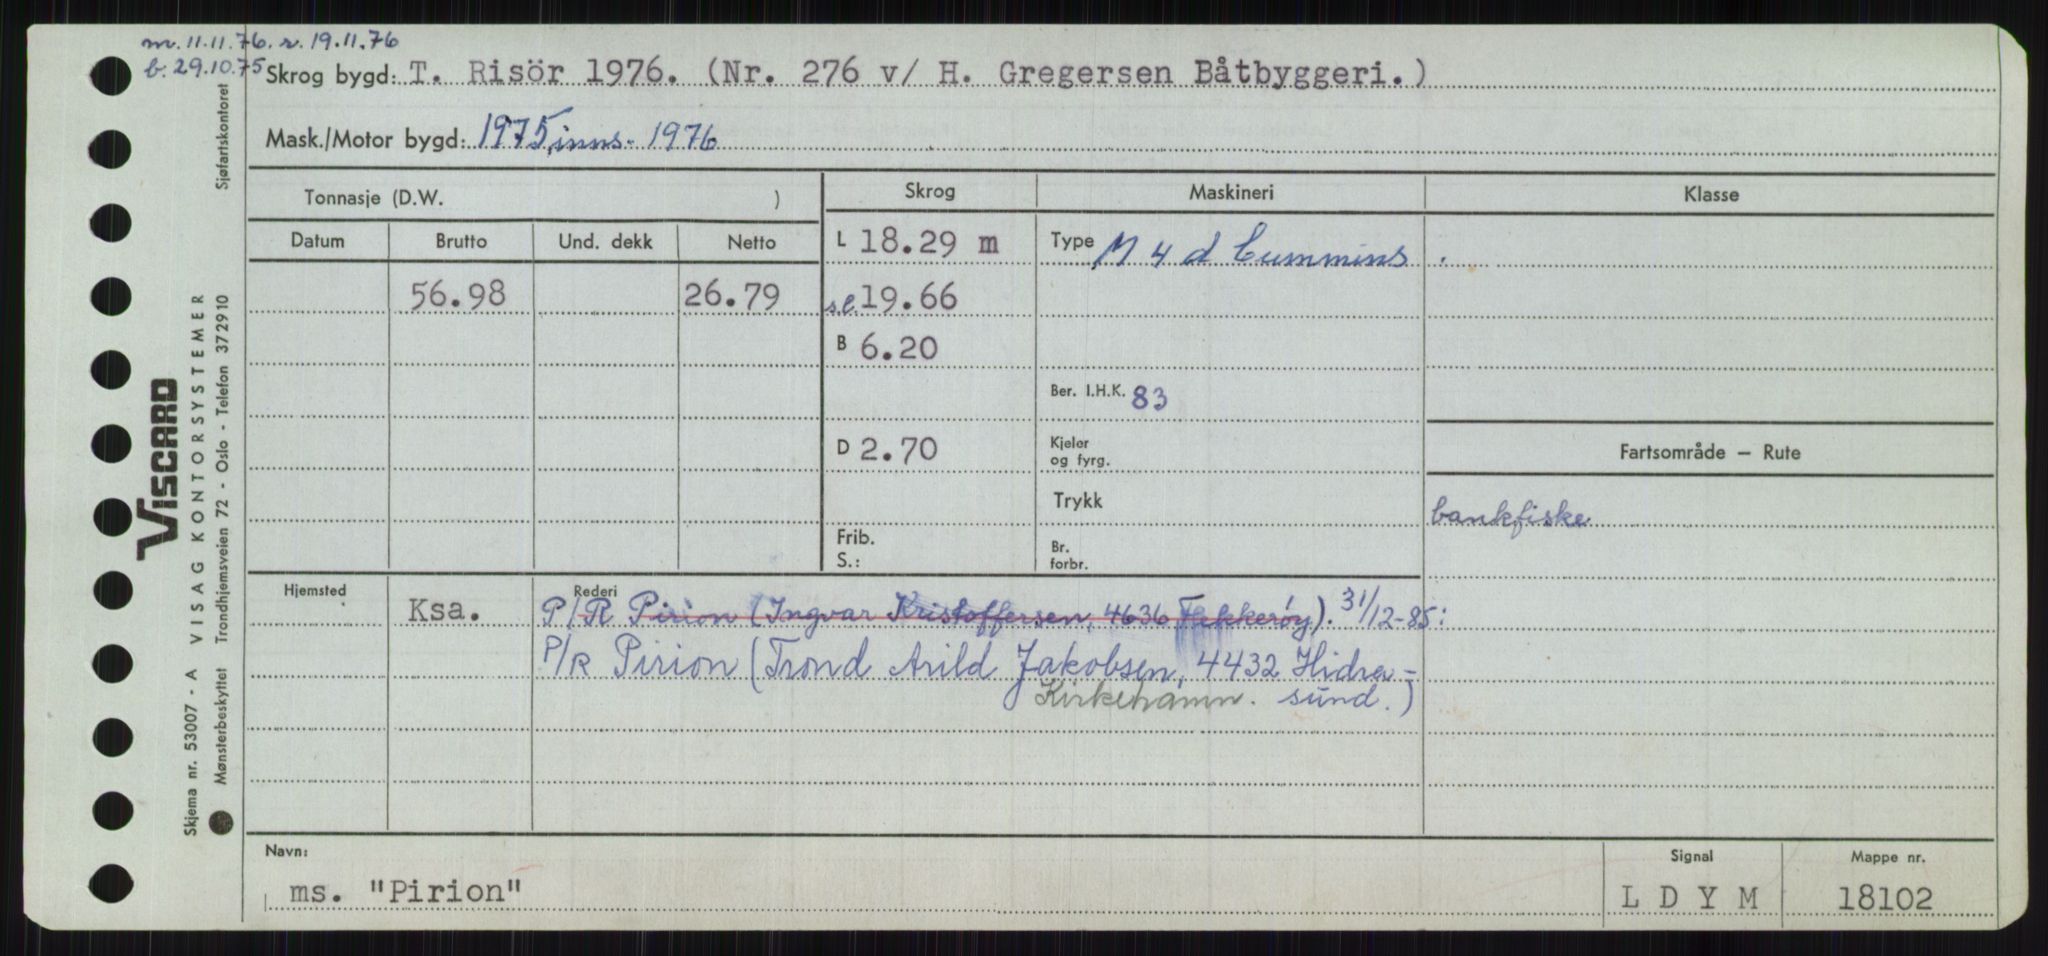 m. 11.11.76. r. 19.11.76
b. 29.10.75
Skrog bygd: T. Risör 1976. (Nr. 276 v/ H. Gregersen Båtbyggeri.)
Mask./Motor bygd: 1975, inns. 1976
Tonnasje (D.W. )
Skrog
Maskineri
Klasse
Datum Brutto Und. dekk Netto
L 18.29 m
Type M 4 d Cummins
56.98 26.79
s.l. 19.66
B 6.20
Ber. I.H.K. 83
D 2.70
Kjeler
og fyrg.
Fartsområde — Rute
Trykk
bankfiske
Frib.
S.:
Br.
forbr.
Hjemsted Ksa.
Rederi
P/R Pirion (Ingvar Kristoffersen, 4636 Flekkerøy). 31/12-85:
P/R Pirion (Trond Arild Jakobsen, 4432 Hidra-
Kirkehamn. sund.)
Navn:
ms. "Pirion"
Signal
L D Y M
Mappe nr.
18102
VISCARD
Skjema nr. 53007 - A VISAG KONTORSYSTEMER
Mønsterbeskyttet Trondhjemsveien 72 - Oslo - Telefon 372910 Sjøfartskontoret